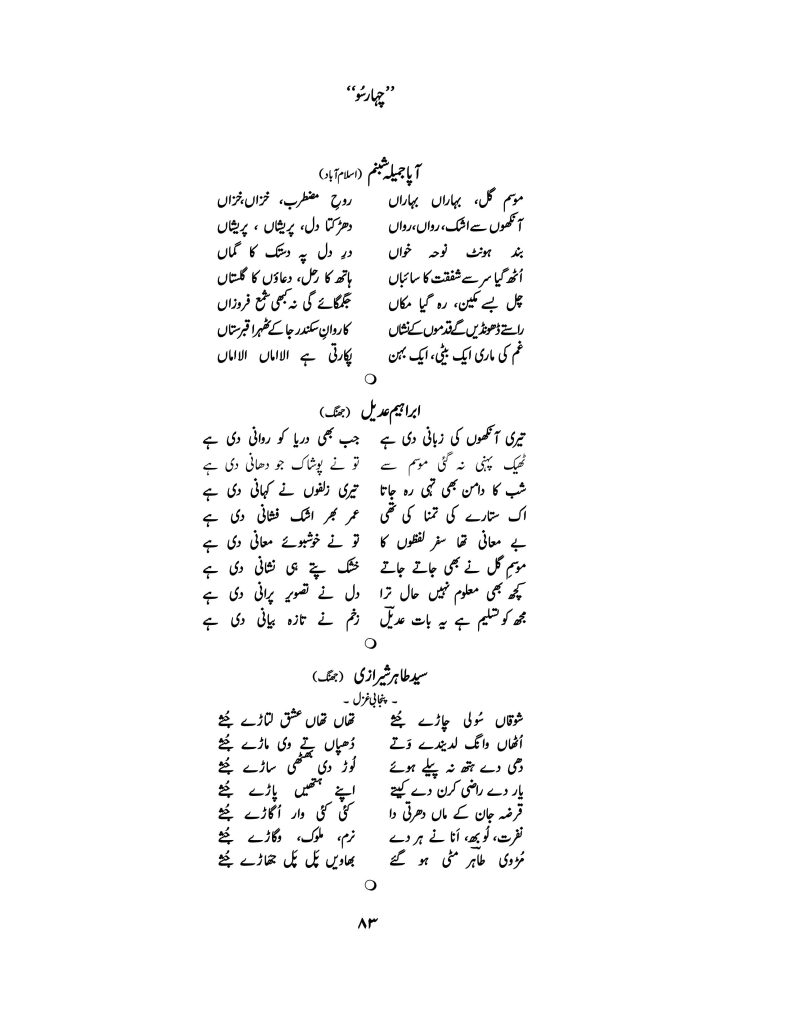 ”چہارسُو“
آپا جمیلہ شبنم (اسلام آباد)
موسم گل، بہاراں بہاراں روحِ مضطرب، خزاں، خزاں
آنکھوں سے اشک، رواں، رواں دھڑکتا دل، پریشاں ، پریشاں
بند ہونٹ نوحہ خواں درِ دل پہ دستک کا گماں
اُٹھ گیا سر سے شفقت کا سائباں ہاتھ کا رحل، دعاؤں کا گلستاں
چل بسے مکین، رہ گیا مکاں جگمگائے گی نہ کبھی شمع فروزاں
راستے ڈھونڈیں گے قدموں کے نشاں کاروانِ سکندر جا کے ٹھہرا قبرستاں
غم کی ماری ایک بیٹی، ایک بہن پکارتی ہے الااماں الااماں
ابراہیم عدیل (جھنگ)
تیری آنکھوں کی زبانی دی ہے جب بھی دریا کو روانی دی ہے
ٹھیک پہنی نہ گئی موسم سے تو نے پوشاک جو دھانی دی ہے
شب کا دامن بھی تہی رہ جاتا تیری زلفوں نے کہانی دی ہے
اک ستارے کی تمنا کی تھی عمر بھر اشک فشانی دی ہے
بے معانی تھا سفر لفظوں کا تو نے خوشبوئے معانی دی ہے
موسمِ گل نے بھی جاتے جاتے خشک پتے ہی نشانی دی ہے
کچھ بھی معلوم نہیں حال ترا دل نے تصویر پرانی دی ہے
مجھ کو تسلیم ہے یہ بات عدیلؔ زخم نے تازہ بیانی دی ہے
سید طاہر شیرازی (جھنگ)
۔ پنجابی غزل ۔
شوقاں سُولی چاڑے جُثے تھاں تھاں عشق لتاڑے جُثے
اُٹھاں وانگ لدیندے وَتے دُھپاں تے وی ماڑے جُثے
دھی دے ہتھ نہ پیلے ہوئے لُوڑ دی بھٹھی ساڑے جُثے
یار دے راضی کرن دے کیتے اپنے ہتھیں پاڑے جُثے
قرضہ جان کے ماں دھرتی دا کئی کئی وار اُگاڑے جُثے
نفرت، لُوبھ، اَنا نے ہر دے نرم، ملوک، وگاڑے جُثے
مُڑ وی طاہرؔ مٹی ہو گئے بھاویں پَل پَل جھاڑے جُثے
۸۳